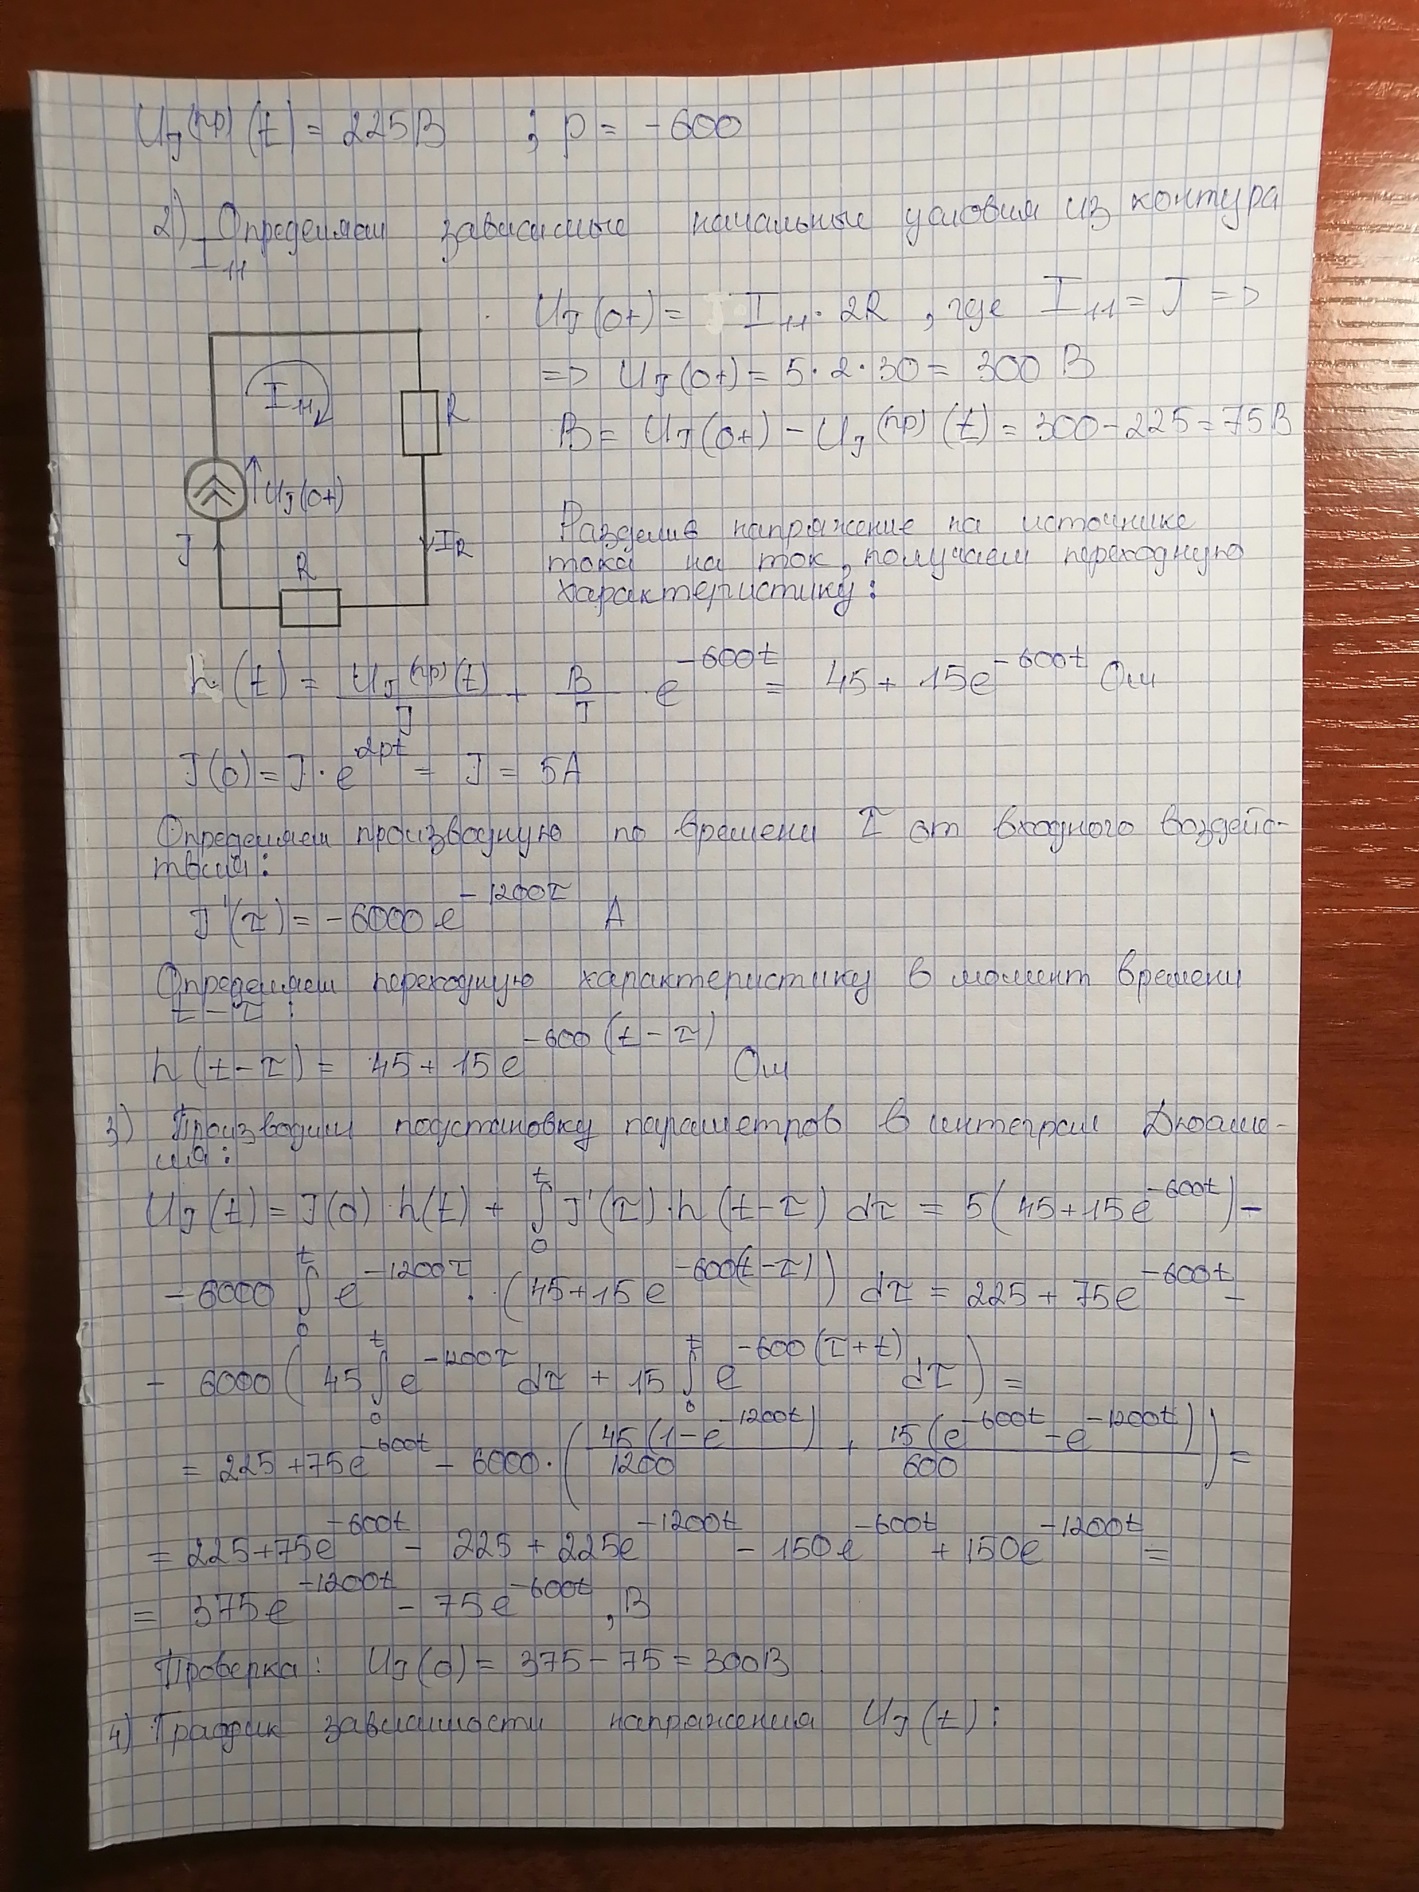 U_J^(пр)(t) = 225В ; p = -600
2) Определяем зависимые начальные условия из контура
I_11
U_J(0+) = I_11 · 2R , где I_11 = J =>
=> U_J(0+) = 5·2·30 = 300 В
B = U_J(0+) - U_J^(пр)(t) = 300-225 = 75В
I_11
R
U_J(0+)
J
I_R
R
Разделив напряжение на источнике
тока на ток, получаем переходную
характеристику:
h(t) = U_J^(пр)(t)/J + B/J · e^(-600t) = 45 + 15e^(-600t) Ом
J(0) = J · e^(2pt) = J = 5А
Определяем производную по времени τ от входного воздейс-
твия:
J'(τ) = -6000e^(-1200τ) А
Определяем переходную характеристику в момент времени
t-τ:
h(t-τ) = 45 + 15e^(-600(t-τ)) Ом
3) Производим подстановку параметров в интеграл Дюаме-
ля:
U_J(t) = J(0)·h(t) + ∫_0^t J'(τ)·h(t-τ) dτ = 5(45+15e^(-600t)) -
- 6000 ∫_0^t e^(-1200τ) · (45+15e^(-600(t-τ))) dτ = 225 + 75e^(-600t) -
- 6000(45 ∫_0^t e^(-1200τ) dτ + 15 ∫_0^t e^(-600(τ+t)) dτ) =
= 225+75e^(-600t) - 6000·(45(1-e^(-1200t))/1200 + 15(e^(-600t)-e^(-1200t))/600) =
= 225+75e^(-600t) - 225 + 225e^(-1200t) - 150e^(-600t) + 150e^(-1200t) =
= 375e^(-1200t) - 75e^(-600t), В
Проверка: U_J(0) = 375-75 = 300В
4) График зависимости напряжения U_J(t):